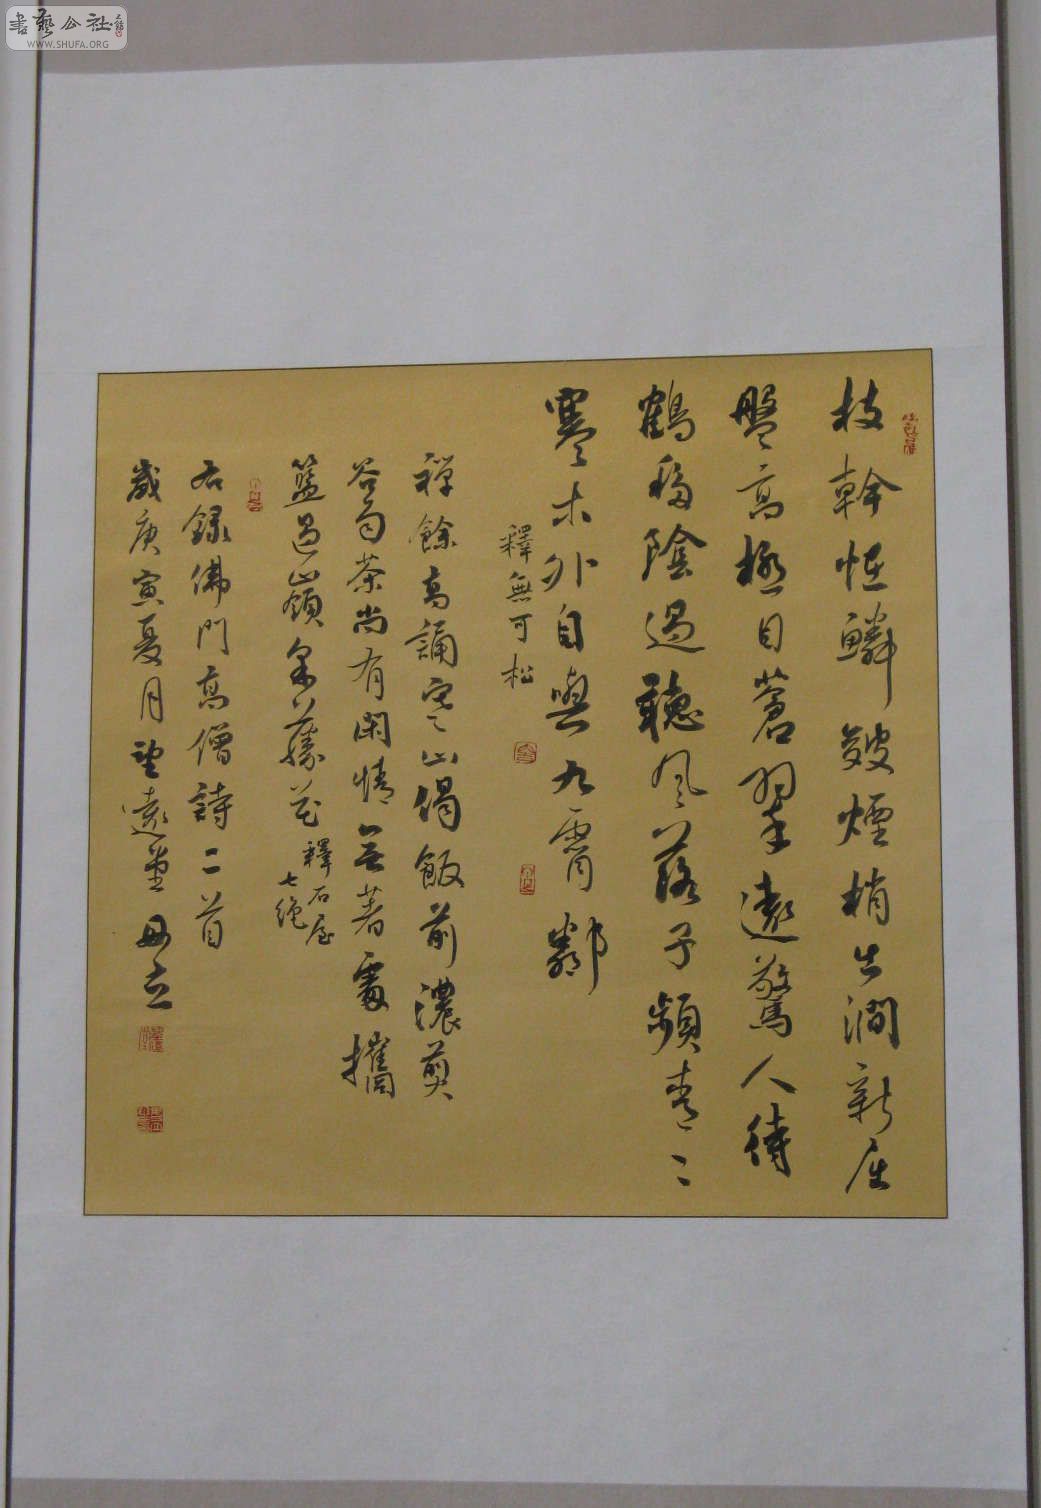 書藝公社
WWW.SHUFA.ORG
枝幹怪鱗皴煙梢出澗新屈
盤高極目蒼翠遠驚人待
鶴移陰過聽風落子頻青〻
寒木外自與九霄鄰
釋無可松
禪餘高誦寒山偈飯前濃煎
谷雨茶尚有閑情無著處攜
籃過嶺采藤花
釋石屋
七絕
右錄佛門高僧詩二首
歲庚寅夏月望遠堂毋立